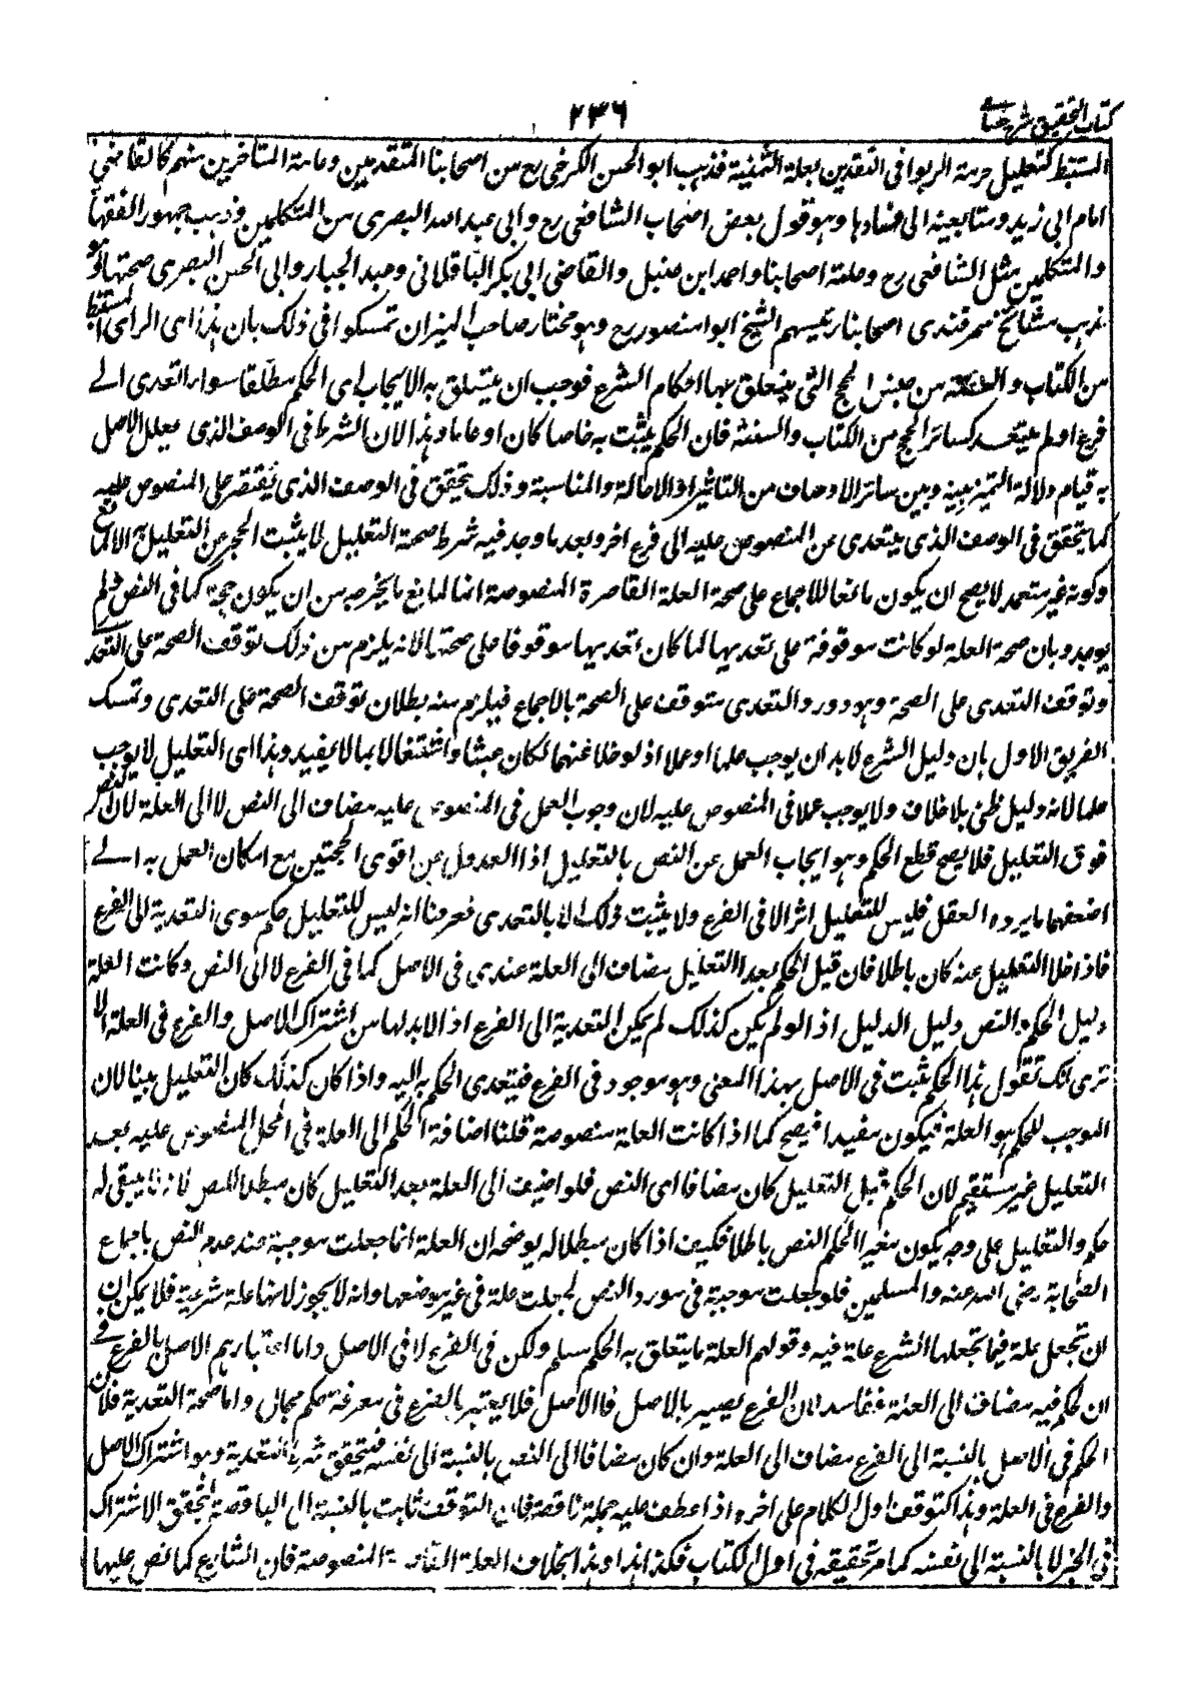 كتاب التحقيق شرح حسامى
٢٣٦
المستنبط كتعليل حرمة الربوا فى النقدين بعلة الثمنية فذهب ابو الحسن الكرخى رح من اصحابنا المتقدمين وعامة المتاخرين منهم كالقاضى
امام ابى زيد ومتابعيه الى فسادها وهو قول بعض اصحاب الشافعى رح وابى عبد الله البصرى من المتكلمين وذهب جمهور الفقهاء
والمتكلمين مثل الشافعى رح وعامة اصحابنا واحمد ابن حنبل والقاضى ابى بكر الباقلانى وعبد الجبار وابى الحسن البصرى صحتها وهو
مذهب مشائخ سمرقندى اصحابنا رئيسهم الشيخ ابو منصور رح وهو مختار صاحب الميزان تمسكوا فى ذلك بان هذا اى الراى المستنبط
من الكتاب والسنة من جنس الحجج التى يتعلق بها احكام الشرع فوجب ان يتعلق به الايجاب اى الحكم مطلقا سواء التعدى الے
فرع او لم يتعد كسائر الحجج من الكتاب والسنة فان الحكم يثبت به خاصا كان او عاما وهذا لان الشرط فى الوصف الذى يعلل الاصل
به قيام دلالة التميز بينه وبين سائر الاوصاف من التاثير او الاخالة والمناسبة وذلك يتحقق فى الوصف الذى يقتصر على المنصوص عليه
كما يتحقق فى الوصف الذى يتعدى عن المنصوص عليه الى فرع اخر وبعد ما وجد فيه شرط صحة التعليل لا يثبت الحجر عن التعليل به الا لمانع
وكونه غير متعد لا يصح ان يكون مانعا للاجماع على صحة العلة القاصرة المنصوصة انما المانع ما يخرجه من ان يكون حجة كما فى النص فلم
يوجد وبان صحة العلة لو كانت موقوفة على تعديها لما كان تعديها موقوفا على صحتها لانه يلزم من ذلك توقف الصحة على التعدى
وتوقف التعدى على الصحة وهو دور والتعدى متوقف على الصحة بالاجماع فيلزم منه بطلان توقف الصحة على التعدى وتمسك
الفريق الاول بان دليل الشرع لا بد ان يوجب علما او عملا اذ لو خلا عنهما لكان عبثا واشتغالا بما لا يفيد وهذا اى التعليل لا يوجب
علما لانه دليل ظنى بلا خلاف ولا يوجب عملا فى المنصوص عليه لان وجوب العمل فى المنصوص عليه مضاف الى النص لا الى العلة لان النص
فوق التعليل فلا يصح قطع الحكم وهو ايجاب العمل عن النص بالتعليل اذ العدول عن اقوى الحجتين مع امكان العمل به الے
اضعفهما ما يرده العقل فليس للتعليل اثر الا فى الفرع ولا يثبت ذلك الا بالتعدى فعرفنا انه ليس للتعليل حكم سوى التعدية الى الفرع
فاذا خلا التعليل عنه كان باطلا فان قيل الحكم بعد التعليل مضاف الى العلة عندى فى الاصل كما فى الفرع لا الى النص وكانت العلة
دليل الحكم والنص دليل الدليل اذ لو لم يكن كذلك لم يكن التعدية الى الفرع اذ لا بد لها من اشتراك الاصل والفرع فى العلة الا
ترى انك تقول هذا الحكم ثبت فى الاصل بهذا المعنى وهو موجود فى الفرع فيتعدى الحكم به اليه واذا كان كذلك كان التعليل مبينا لان
الموجب للحكم هو العلة فيكون مفيدا فيصح كما اذا كانت العلة منصوصة قلنا اضافة الحكم الى العلة فى المحل المنصوص عليه بعد
التعليل غير مستقيم لان الحكم قبل التعليل كان مضافا الى النص فلو اضيف الى العلة بعد التعليل كان مبطلا للنص لانه لا يبقى له
حكم والتعليل على وجه يكون مغيرا لحكم النص باطل فكيف اذا كان مبطلا له يوضحه ان العلة انما جعلت موجبة عند عدم النص باجماع
الصحابة رضى الله عنه والمسلمين فلو جعلت موجبة فى مورد النص لجعلت علة فى غير موضعها وانه لا يجوز لانها علة شرعية فلا يمكن
ان تجعل علة فيما تجعلها الشرع علة فيه وقولهم العلة ما يتعلق به الحكم مسلم ولكن فى الفرع لا فى الاصل واما اعتبارهم الاصل بالفرع فے
ان الحكم فيه مضاف الى العلة ففاسد لان الفرع يعتبر بالاصل فاما الاصل فلا يعتبر بالفرع فى معرفة حكم بحال واما صحة التعدية فلان
الحكم فى الاصل بالنسبة الى الفرع مضاف الى العلة وان كان مضافا الى النص بالنسبة الى نفسه فيتحقق شرط التعدية وهو اشتراك الاصل
والفرع فى العلة وهذا كتوقف اول الكلام على اخره اذا عطف عليه جملة ناقصة فان التوقف ثابت بالنسبة الى الناقصة ليتحقق الاشتراك
فى الخبر لا بالنسبة الى نفسه كما مر تحقيقه فى اول الكتاب فكذا هذا وهذا بخلاف العلة القاصرة المنصوصة فان الشارع كما نص عليها